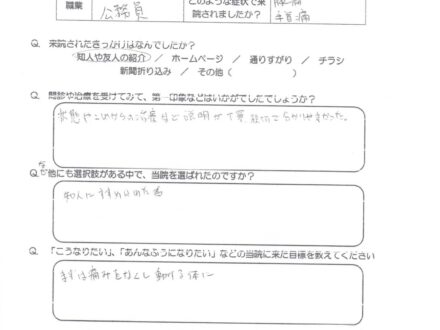 職業 公務員 どのような症状で来院されましたか? 腰痛 首痛
Q. 来院されたきっかけはなんでしたか?
知人や友人の紹介 / ホームページ / 通りすがり / チラシ
新聞折り込み / その他 ( )
Q. 問診や治療を受けてみて、第一印象などはいかがでしたでしょうか?
状態やこれからの治療など説明が丁寧 親切で分かりやすかった。
Q. なぜ他にも選択肢がある中で、当院を選ばれたのですか?
知人にすすめられた為
Q. 「こうなりたい」、「あんなふうになりたい」などの当院に来た目標を教えてください
まずは痛みをなくし動ける体に